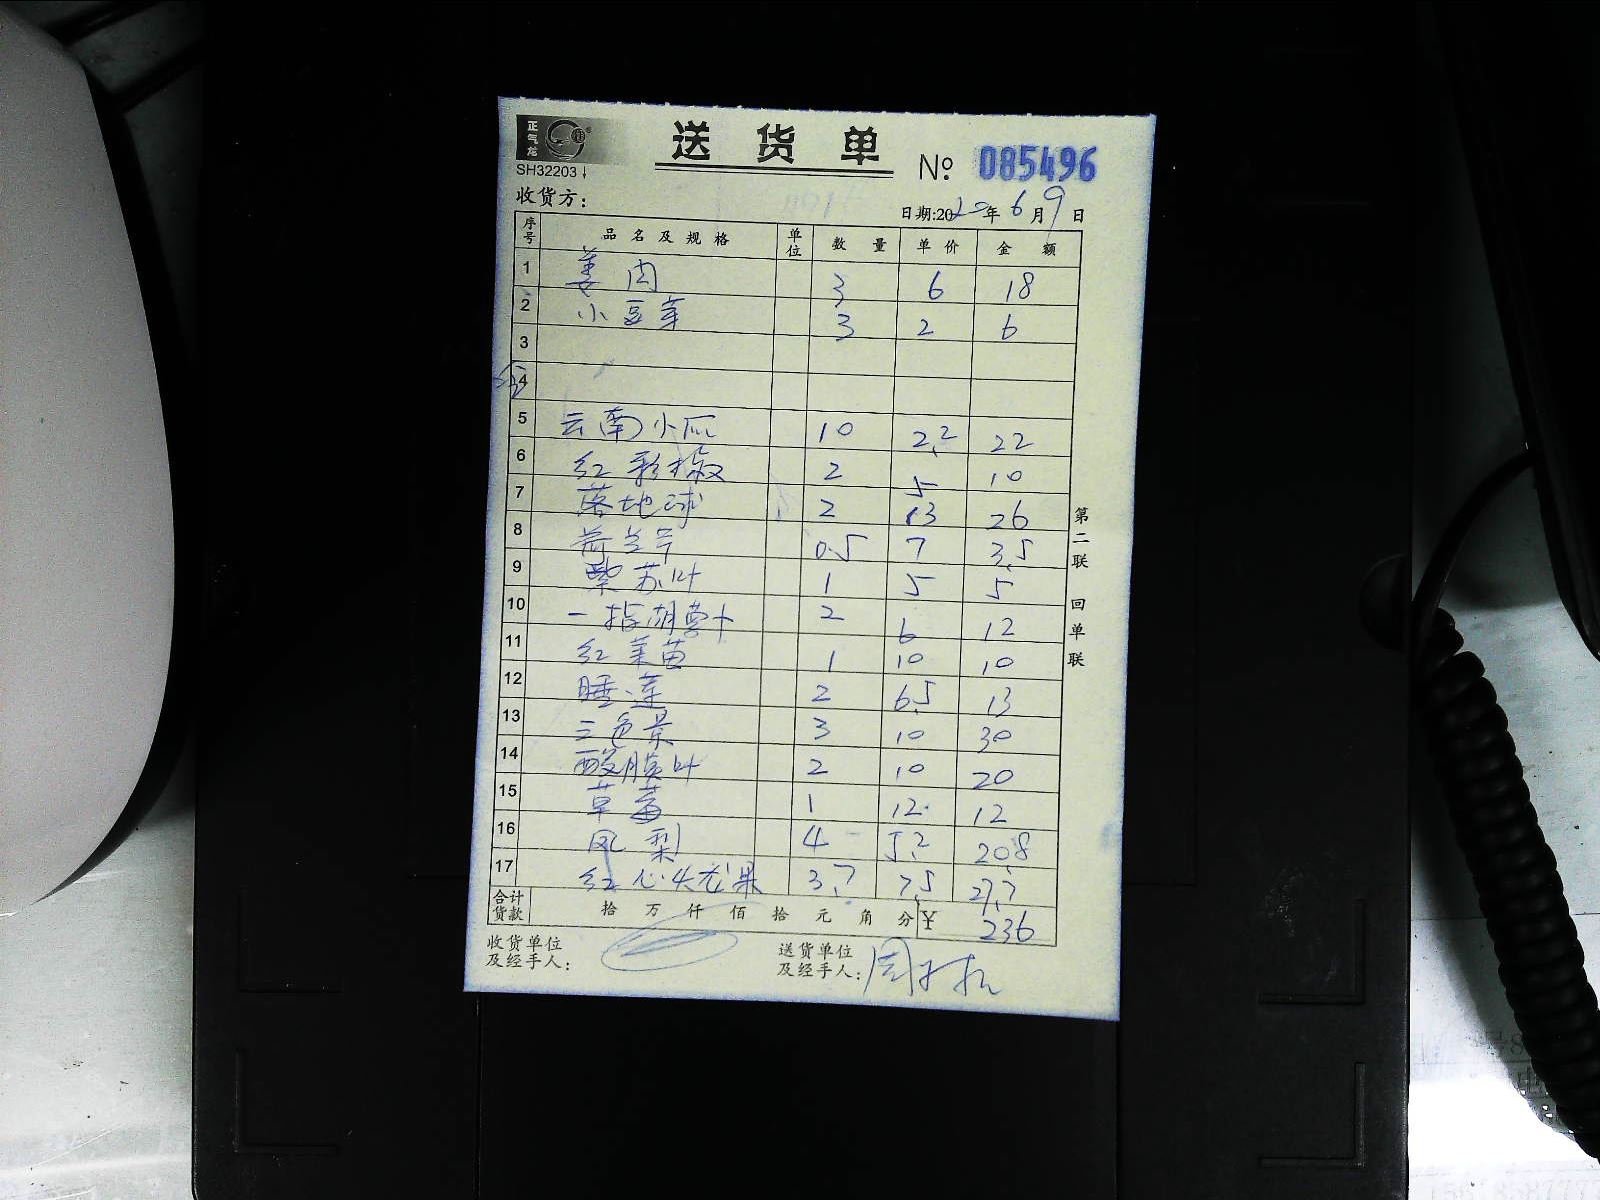 正气龙
送货单
SH32203
№ 085496
收货方：
日期:2020年6月9日
序号 品名及规格 单位 数量 单价 金额
1 姜肉 3 6 18
2 小豆芽 3 2 6
3
4
5 云南小瓜 10 2.2 22
6 红彩椒 2 5 10
7 落地球 2 13 26
8 荷兰芹 0.5 7 3.5
9 紫苏叶 1 5 5
10 一指胡萝卜 2 6 12
11 红菜苗 1 10 10
12 睡莲 2 6.5 13
13 三色景 3 10 30
14 酸膜叶 2 10 20
15 草莓 1 12 12
16 凤梨 4 5.2 20.8
17 红心火龙果 3.7 7.5 27.7
合计货款 拾万仟佰拾元角分 ¥ 236
收货单位及经手人：
送货单位及经手人：周
第二联 回单联